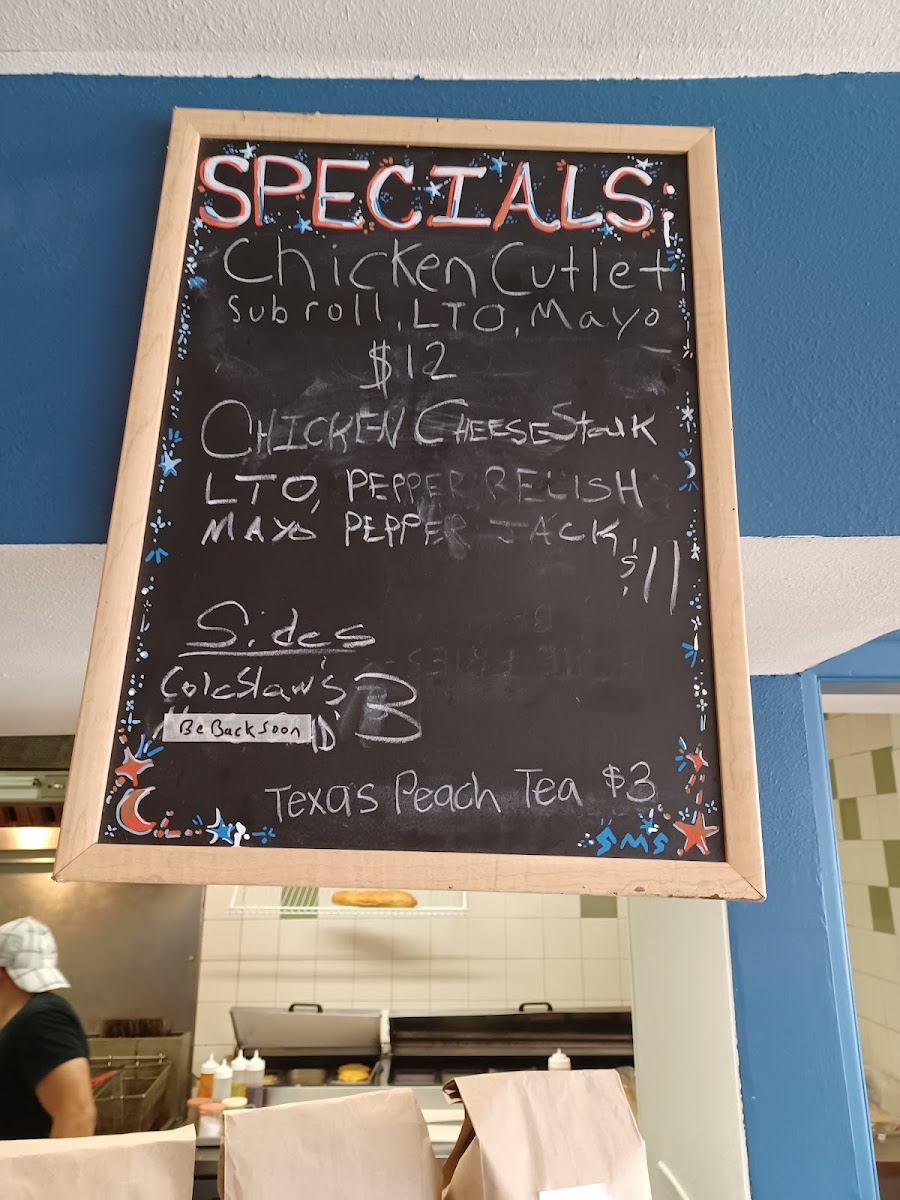 SPECIALS:
Chicken Cutlet
Sub roll, LTO, Mayo
$12
CHICKEN CHEESE Steak
LTO, PEPPER RELISH
MAYO PEPPER JACK,
$11
Sides
Coleslaw $3
Be Back Soon
Texas Peach Tea $3
SMS